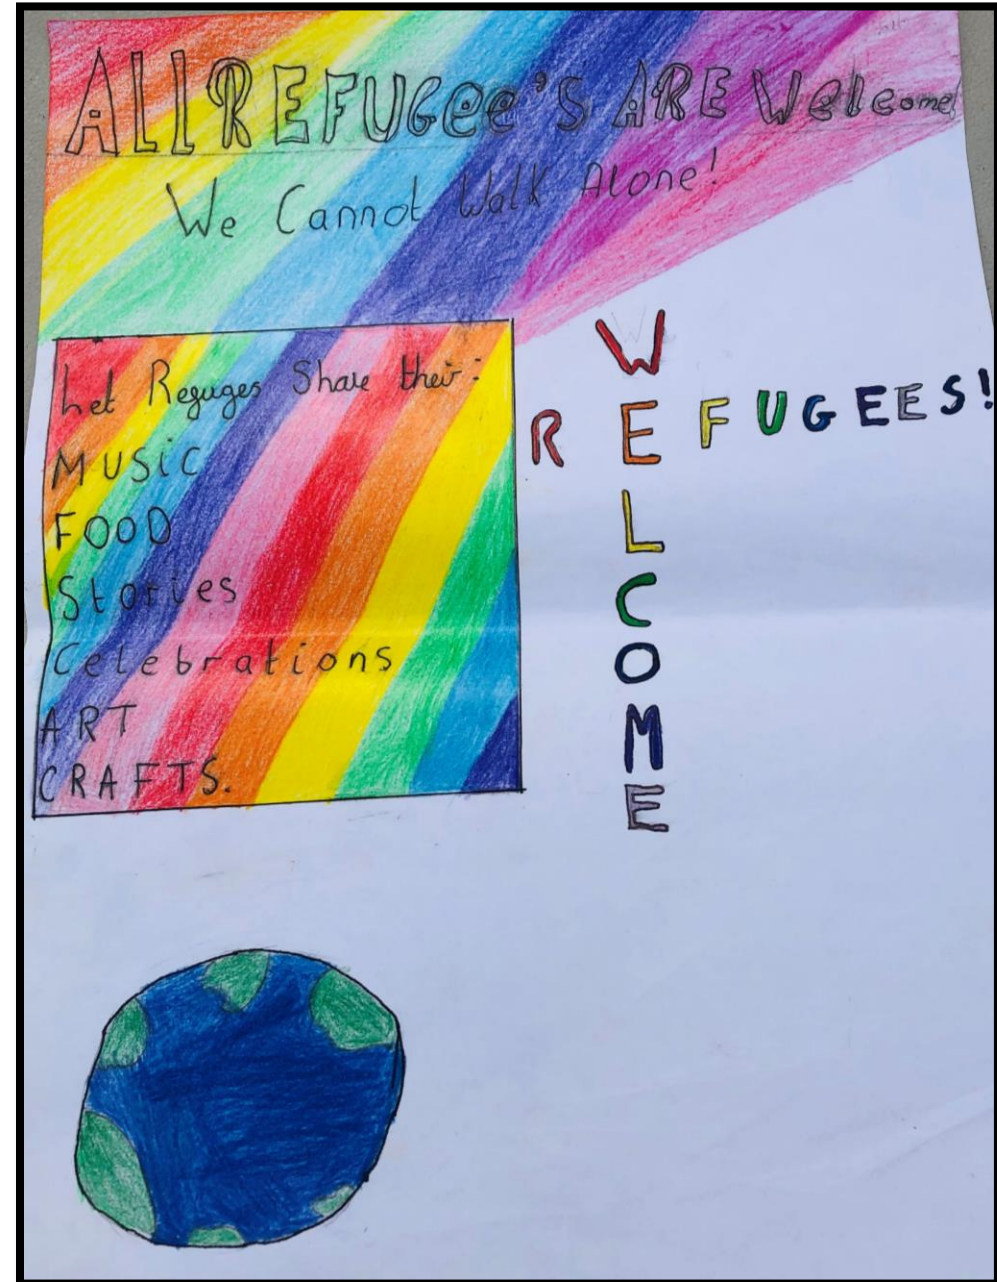 ALL REFUGee's ARE Welcome
We Cannot Walk Alone!
Let Reguges Share their:
MUSIC
FOOD
Stories
Celebrations
ART
CRAFTS.
WELCOME
REFUGEES!